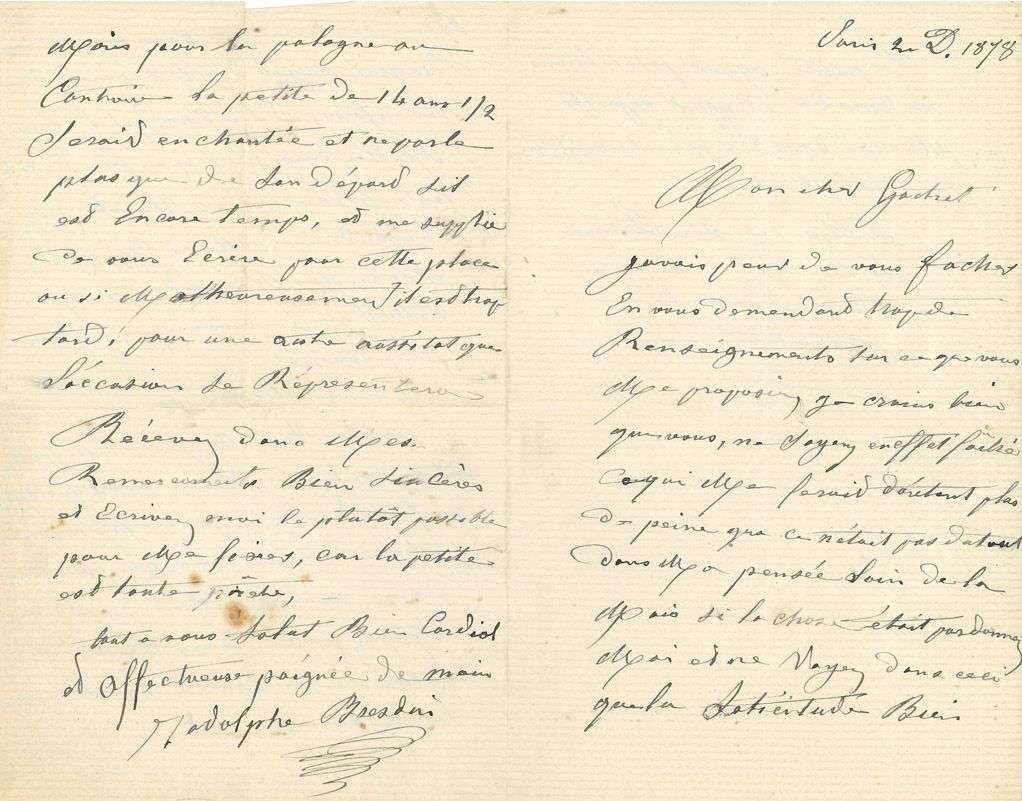 Paris 2 D. 1878
Mon cher Gachet
javais peur de vous facher
En vous demendant trop de
Renseignements sur ce que vous
Me proposiez je crains bien
que vous, ne soyez en effet faché
Ce qui Me ferait d'autant plus
de peine que ce n'était pas du tout
dans Ma pensée loin de la
Mais si la chose était pardonnez
Moi et ne Voyez dans ceci
que la Solicitude Bien
Mais pour la pologne au
Contraire la petite de 14 ans 1/2
Serait enchantée et ne parle
plus que de son départ sil
est Encore temps, et me supplie
de vous Ecrire pour cette place
ou si Malheureusement il est trop
tard, pour une autre aussitot que
l'occasion se Réprésentera
Recevez donc Mes
Remerciements Bien Sincères
et Ecrivez moi le plutôt possible
pour Me fixer, car la petite
est toute prête,
tout a vous Salut Bien Cordial
et affectueuse poignée de main
Rodolphe Bresdin